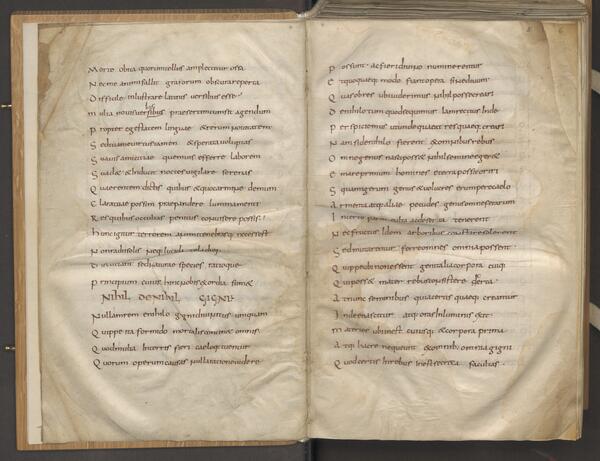 Morte obita quorum tellus amplectitur ossa
Nec me animi fallit graiorum obscura reperta
Difficile inlustrare latinis versibus esse
Multa novis versibus praesertim cum sit agendum
Propter egestatem linguae et rerum novitatem
Sed tua me virtus tamen et sperata voluptas
Suavis amicitiae quemvis efferre laborem
Suadet et inducit noctes vigilare serenas
Quaerentem dictis quibus et quo carmine demum
Clara tuae possim praepandere lumina menti
Res quibus occultas penitus convisere possis
hunc igitur terrorem animi tenebrasq; necessest
Non radii solis neq; lucida tela diei
Discutiant sed naturae species ratioque
Principium cuius hinc nobis exordia sumet
NIHIL DE NIHIL GIGNI
Nullam rem e nihilo gigni divinitus umquam
Quippe ita formido mortalis continet omnis
Quod multa in terris fieri caeloq; tuentur
Quorum operum causas nulla ratione videre
Possunt ac fieri divino numine rentur
Et quo quaeq; modo fiant opera sine divum
Quas ob res ubi viderimus nihil posse creari
De nihilo tum quod sequimur iam rectius inde
Perspiciemus et unde queat res quaeq; creari
Nam si de nihilo fierent ex omnibus rebus
Omne genus nasci posset nihil semine egeret
E mare primum homines e terra posset oriri
Squamigerum genus et volucres erumpere caelo
Armenta atq; aliae pecudes genus omne ferarum
Incerto partu culta ac deserta tenerent
Nec fructus idem arboribus constare solerent
Sed mutarentur ferre omnes omnia possent
Quippe ubi non essent genitalia corpora cuiq;
Qui posset mater rebus consistere certa
At nunc seminibus quia certis quaeq; creantur
Inde enascitur atq; oras in luminis exit
Materies ubi inest cuiusq; et corpora prima
Atq; hac re nequeunt ex omnibus omnia gigni
Quod certis in rebus inest secreta facultas